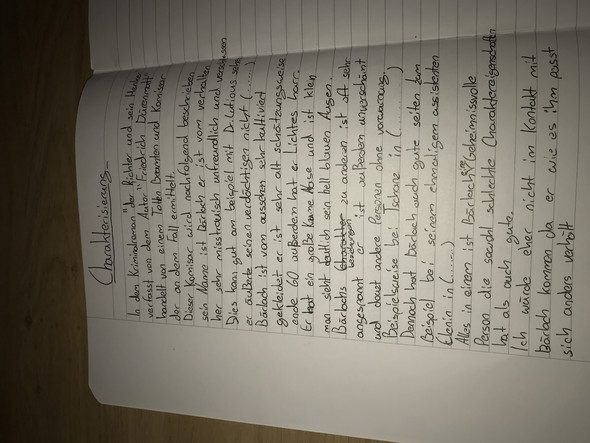 Charakterisierung
In dem Kriminalroman "der Richter und sein Henker"
verfasst von dem Autor "Friedrich Dürenmatt"
handelt von einem Toten Beamten und Komisar
der an dem Fall ermittelt.
Dieser Komisar wird nachfolgend beschrieben
sein Name ist Bärlach er ist vom verhalten
her sehr misstrauisch unfreundlich und verschlossen
Dies kann gut am beispiel mit Dr. Lutious sehen
er äußerte seinen verdächtigen nicht (.......)
Bärlach ist vom aussehen sehr kultiviert
gekleidet er ist sehr alt schätzungsweise
ende 60 außerdem hat er Lichtes haar.
Er hat ein große Nase und ist klein
man sieht deutlich sein hell blauen Augen.
Bärlachs zu anderen ist oft sehr
angespannt er ist außerdem unverschämt
und bauet andere Personen ohne vorwarnung
Beispielsweise bei Tschanz in (.......)
Dennoch hat Bärlach auch gute seiten zum
Beispiel bei seinem ehemaligem assistenten
in (.......)
Alles in einem ist Bärlach eine Geheimnissvolle
Person die sowohl schlechte Charaktereigenschaften
hat als auch gute.
Ich würde eher nicht im Kontakt mit
bärlach kommen da er wie es ihm passt
sich anders verhält